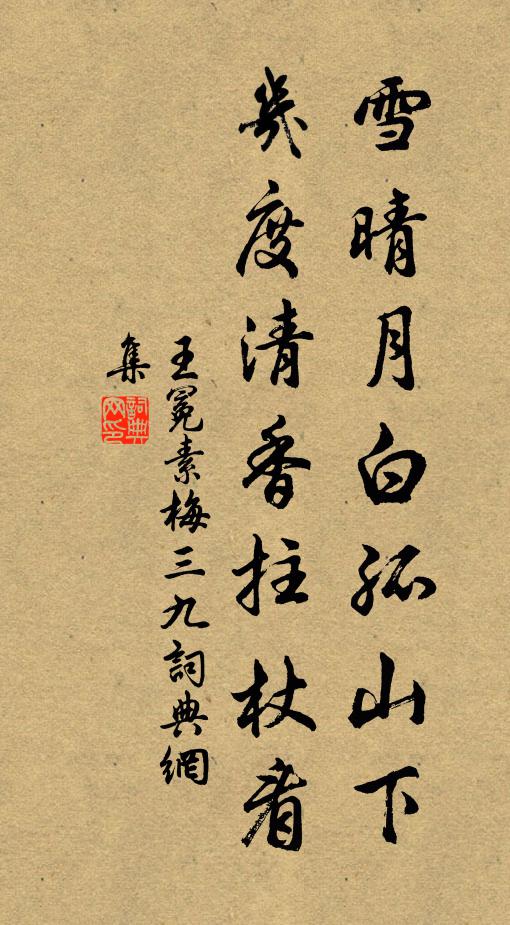 雪晴月白孤山下
幾度清香拄杖看
王冕素梅三九詞典網
集
詞典
网印